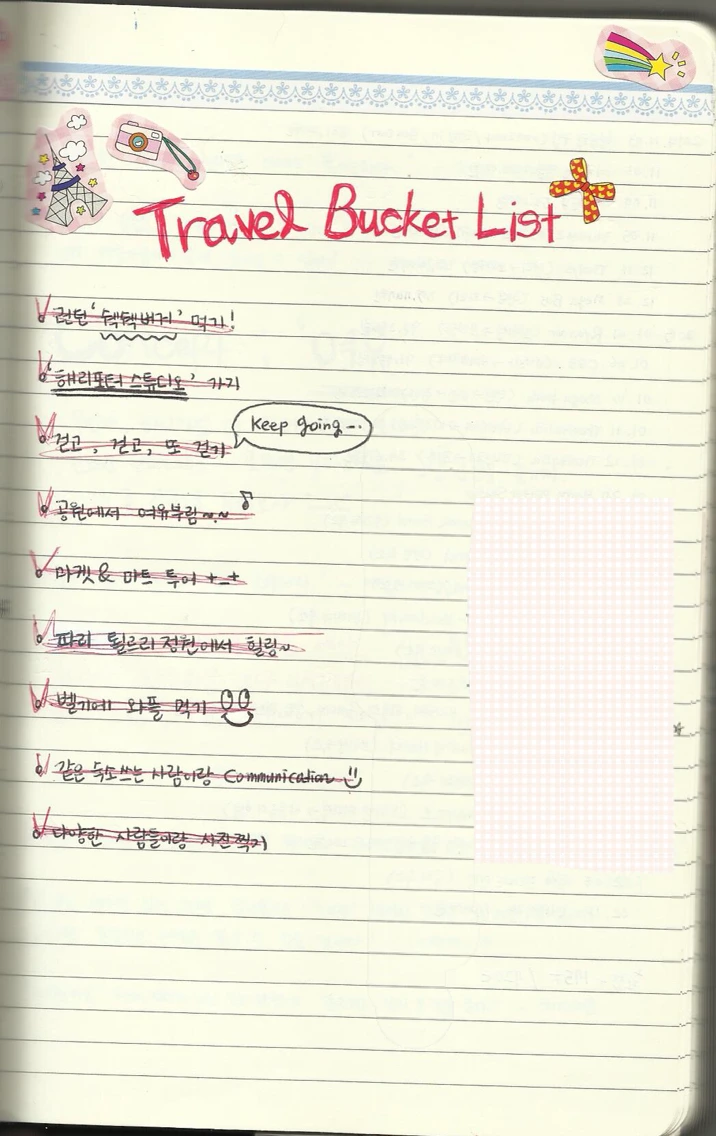 Travel Bucket List
런던 '쉑쉑버거' 먹기!
'해리포터 스튜디오' 가기
Keep going~.
걷고, 걷고, 또 걷기
공원에서 여유부림~.~ ♪
마켓 & 마트 투어 +_+
파리 튈르리 정원에서 힐링~
벨기에 와플 먹기
같은 숙소쓰는 사람이랑 Communication
다양한 사람들이랑 사진찍기